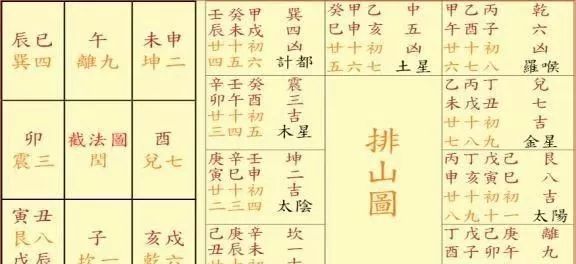 辰巳
巽四
午
離九
未申
坤二
卯
震三
截法圖
閏
酉
兌七
寅丑
艮八
戊辰
子
坎一
亥戌
乾六
壬癸甲巽
辰未戌四
廿十初凶
四五六計都
癸甲乙中
巳申亥五
廿十初凶
五六七土星
甲乙丙乾
午酉子六
廿十初凶
六七八羅喉
辛壬癸震
卯午酉三
廿十初吉
三四五木星
排山圖
乙丙丁兌
未戌丑七
廿十初吉
七八九金星
庚辛壬坤
寅巳申二
廿十初吉
二三四太陰
丙丁戊己艮
申亥寅巳八
廿十初初吉
八九十一太陽
己庚辛坎
丑辰未一
丁戊己庚離
酉子卯午九